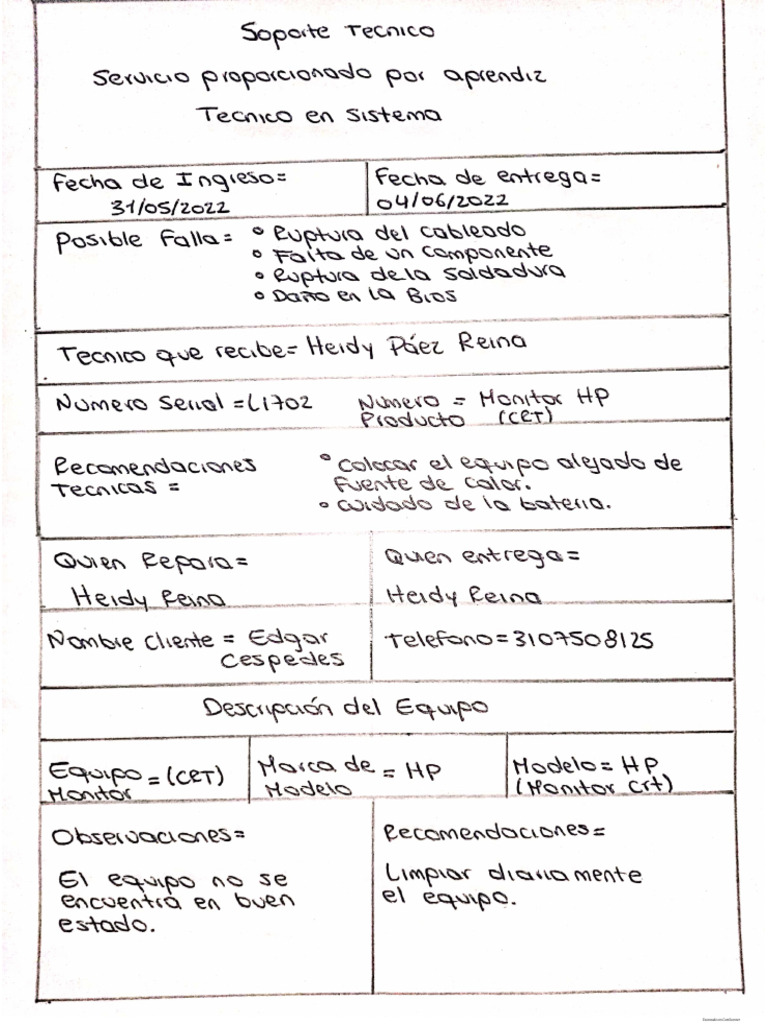 Soporte Tecnico
Servicio proporcionado por aprendiz
Tecnico en sistema
Fecha de Ingreso=
31/05/2022
Fecha de entrega=
04/06/2022
Posible Falla= • Ruptura del cableado
• Falta de un componente
• Ruptura de la soldadura
• Daño en la Bios
Tecnico que recibe= Heidy Páez Reina
Numero serial = L1702 Numero = Monitor HP
Producto (CET)
Recomendaciones
Tecnicas =
• Colocar el equipo alejado de
fuente de calor.
• cuidado de la bateria.
Quien Repara=
Heidy Reina
Quien entrega=
Heidy Reina
Nombre cliente = Edgar
Cespedes
Telefono = 3107508125
Descripción del Equipo
Equipo = (CET)
Monitor
Marca de = HP
Modelo
Modelo = HP
(Monitor Crt)
Observaciones=
El equipo no se
encuentra en buen
estado.
Recomendaciones=
Limpiar diariamente
el equipo.